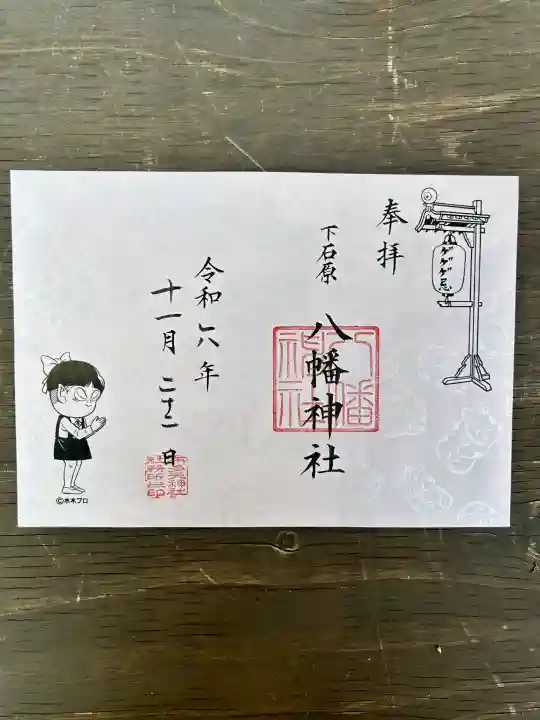 奉拝
下石原
八幡神社
令和六年
十一月二十二日
ゲゲゲ忌
©水木プロ